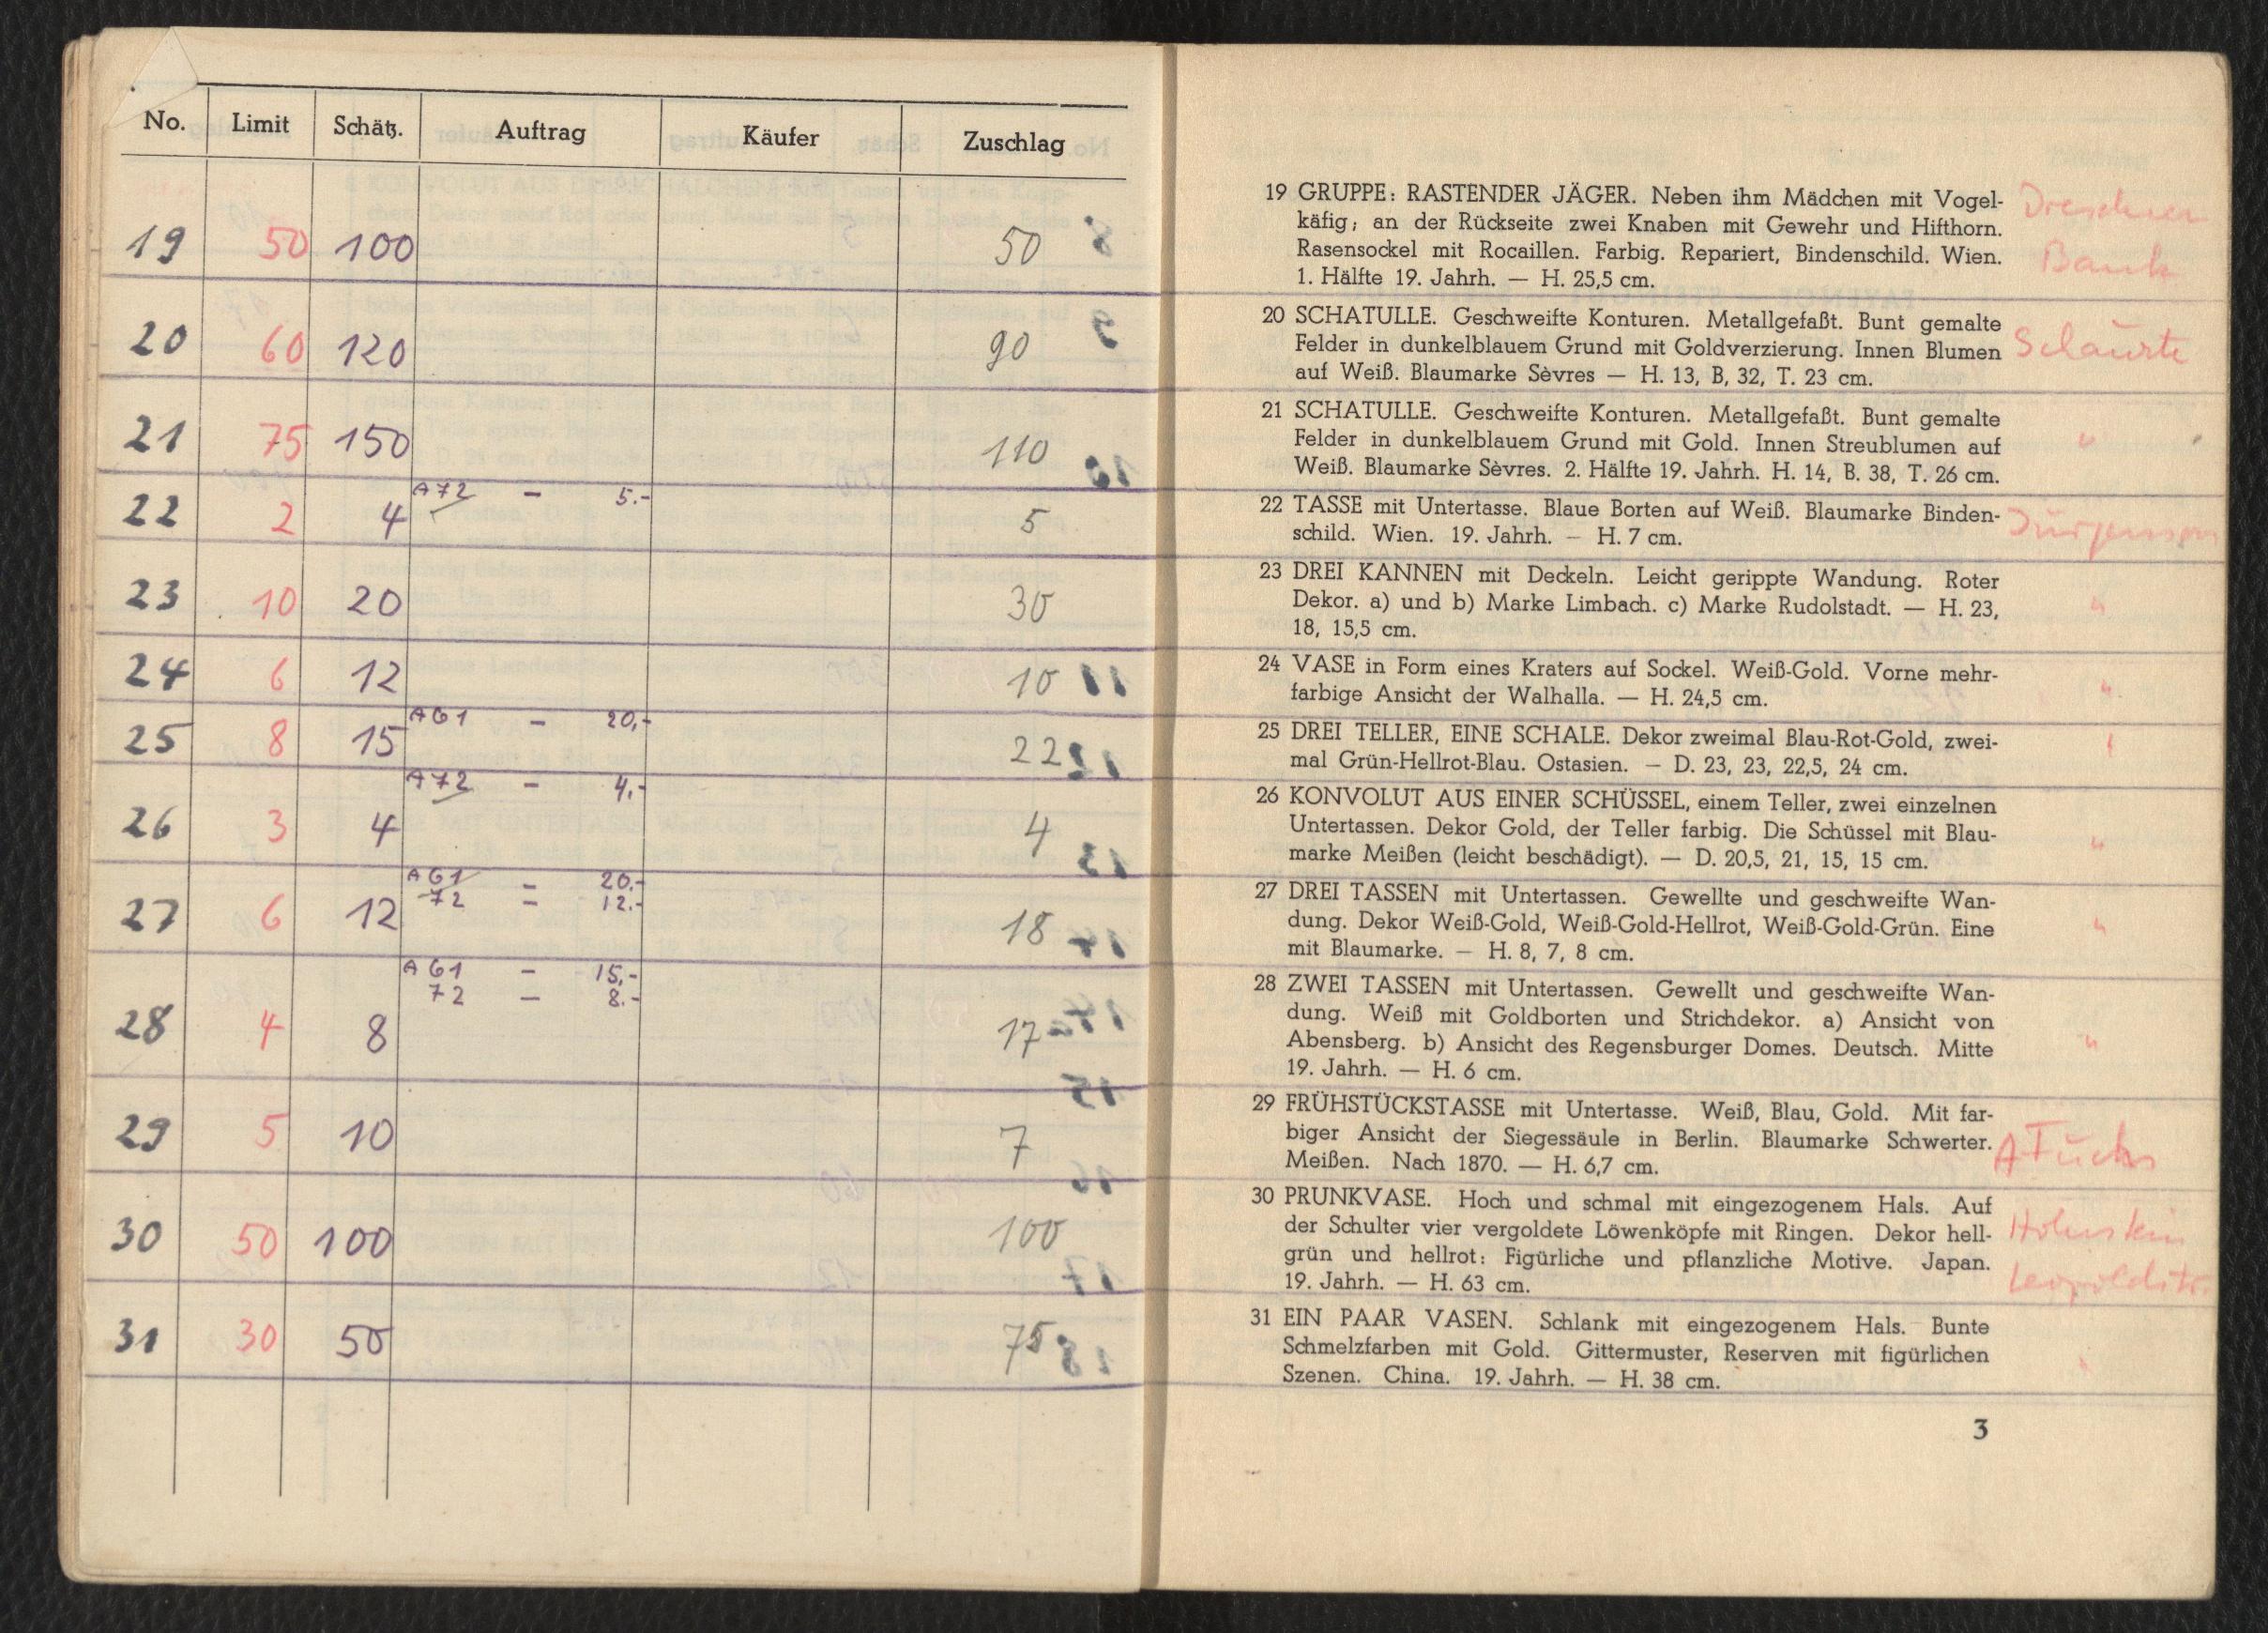 No. Limit Schätz. Auftrag Käufer Zuschlag
19 50 100 50
20 60 120 90
21 75 150 110
22 2 4 A72 - 5.- 5
23 10 20 30
24 6 12 10
25 8 15 A61 - 20,- 22
26 3 4 A72 - 4.- 4
27 6 12 A61 - 20.- 18
72 - 12.-
28 4 8 A61 - 15,- 17
72 - 8.-
29 5 10 7
30 50 100 100
31 30 50 75
19 GRUPPE: RASTENDER JÄGER. Neben ihm Mädchen mit Vogel-
käfig; an der Rückseite zwei Knaben mit Gewehr und Hifthorn.
Rasensockel mit Rocaillen. Farbig. Repariert, Bindenschild. Wien.
1. Hälfte 19. Jahrh. — H. 25,5 cm.
Dresdner
Bank
20 SCHATULLE. Geschweifte Konturen. Metallgefaßt. Bunt gemalte
Felder in dunkelblauem Grund mit Goldverzierung. Innen Blumen
auf Weiß. Blaumarke Sèvres — H. 13, B, 32, T. 23 cm.
21 SCHATULLE. Geschweifte Konturen. Metallgefaßt. Bunt gemalte
Felder in dunkelblauem Grund mit Gold. Innen Streublumen auf "
Weiß. Blaumarke Sèvres. 2. Hälfte 19. Jahrh. H. 14, B. 38, T. 26 cm.
22 TASSE mit Untertasse. Blaue Borten auf Weiß. Blaumarke Binden-
schild. Wien. 19. Jahrh. — H. 7 cm.
23 DREI KANNEN mit Deckeln. Leicht gerippte Wandung. Roter
Dekor. a) und b) Marke Limbach. c) Marke Rudolstadt. — H. 23, "
18, 15,5 cm.
24 VASE in Form eines Kraters auf Sockel. Weiß-Gold. Vorne mehr- "
farbige Ansicht der Walhalla. — H. 24,5 cm.
25 DREI TELLER, EINE SCHALE. Dekor zweimal Blau-Rot-Gold, zwei-
mal Grün-Hellrot-Blau. Ostasien. — D. 23, 23, 22,5, 24 cm.
26 KONVOLUT AUS EINER SCHÜSSEL, einem Teller, zwei einzelnen
Untertassen. Dekor Gold, der Teller farbig. Die Schüssel mit Blau- "
marke Meißen (leicht beschädigt). — D. 20,5, 21, 15, 15 cm.
27 DREI TASSEN mit Untertassen. Gewellte und geschweifte Wan-
dung. Dekor Weiß-Gold, Weiß-Gold-Hellrot, Weiß-Gold-Grün. Eine "
mit Blaumarke. — H. 8, 7, 8 cm.
28 ZWEI TASSEN mit Untertassen. Gewellt und geschweifte Wan-
dung. Weiß mit Goldborten und Strichdekor. a) Ansicht von
Abensberg. b) Ansicht des Regensburger Domes. Deutsch. Mitte "
19. Jahrh. — H. 6 cm.
29 FRÜHSTÜCKSTASSE mit Untertasse. Weiß, Blau, Gold. Mit far-
biger Ansicht der Siegessäule in Berlin. Blaumarke Schwerter. A Fuchs
Meißen. Nach 1870. — H. 6,7 cm.
30 PRUNKVASE. Hoch und schmal mit eingezogenem Hals. Auf
der Schulter vier vergoldete Löwenköpfe mit Ringen. Dekor hell- Hohnstein
grün und hellrot: Figürliche und pflanzliche Motive. Japan. Leopoldstr.
19. Jahrh. — H. 63 cm.
31 EIN PAAR VASEN. Schlank mit eingezogenem Hals. Bunte
Schmelzfarben mit Gold. Gittermuster, Reserven mit figürlichen "
Szenen. China. 19. Jahrh. — H. 38 cm.
3